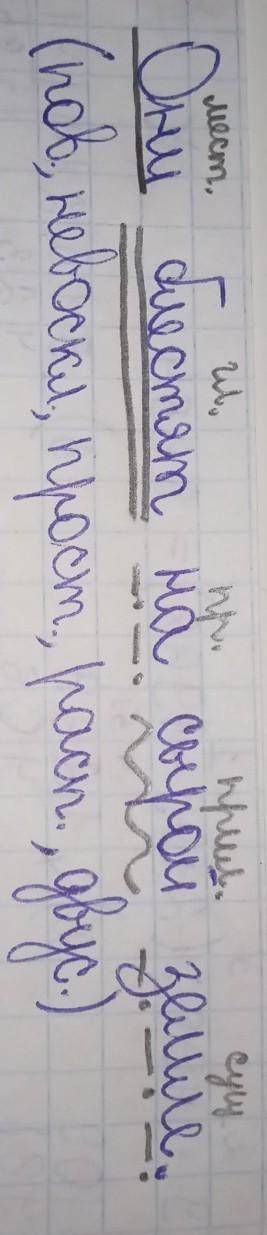 мест. гл. пр. прил. сущ
Они блестят на сырой земле.
(пов., невоскл., прост., расп., двус.)